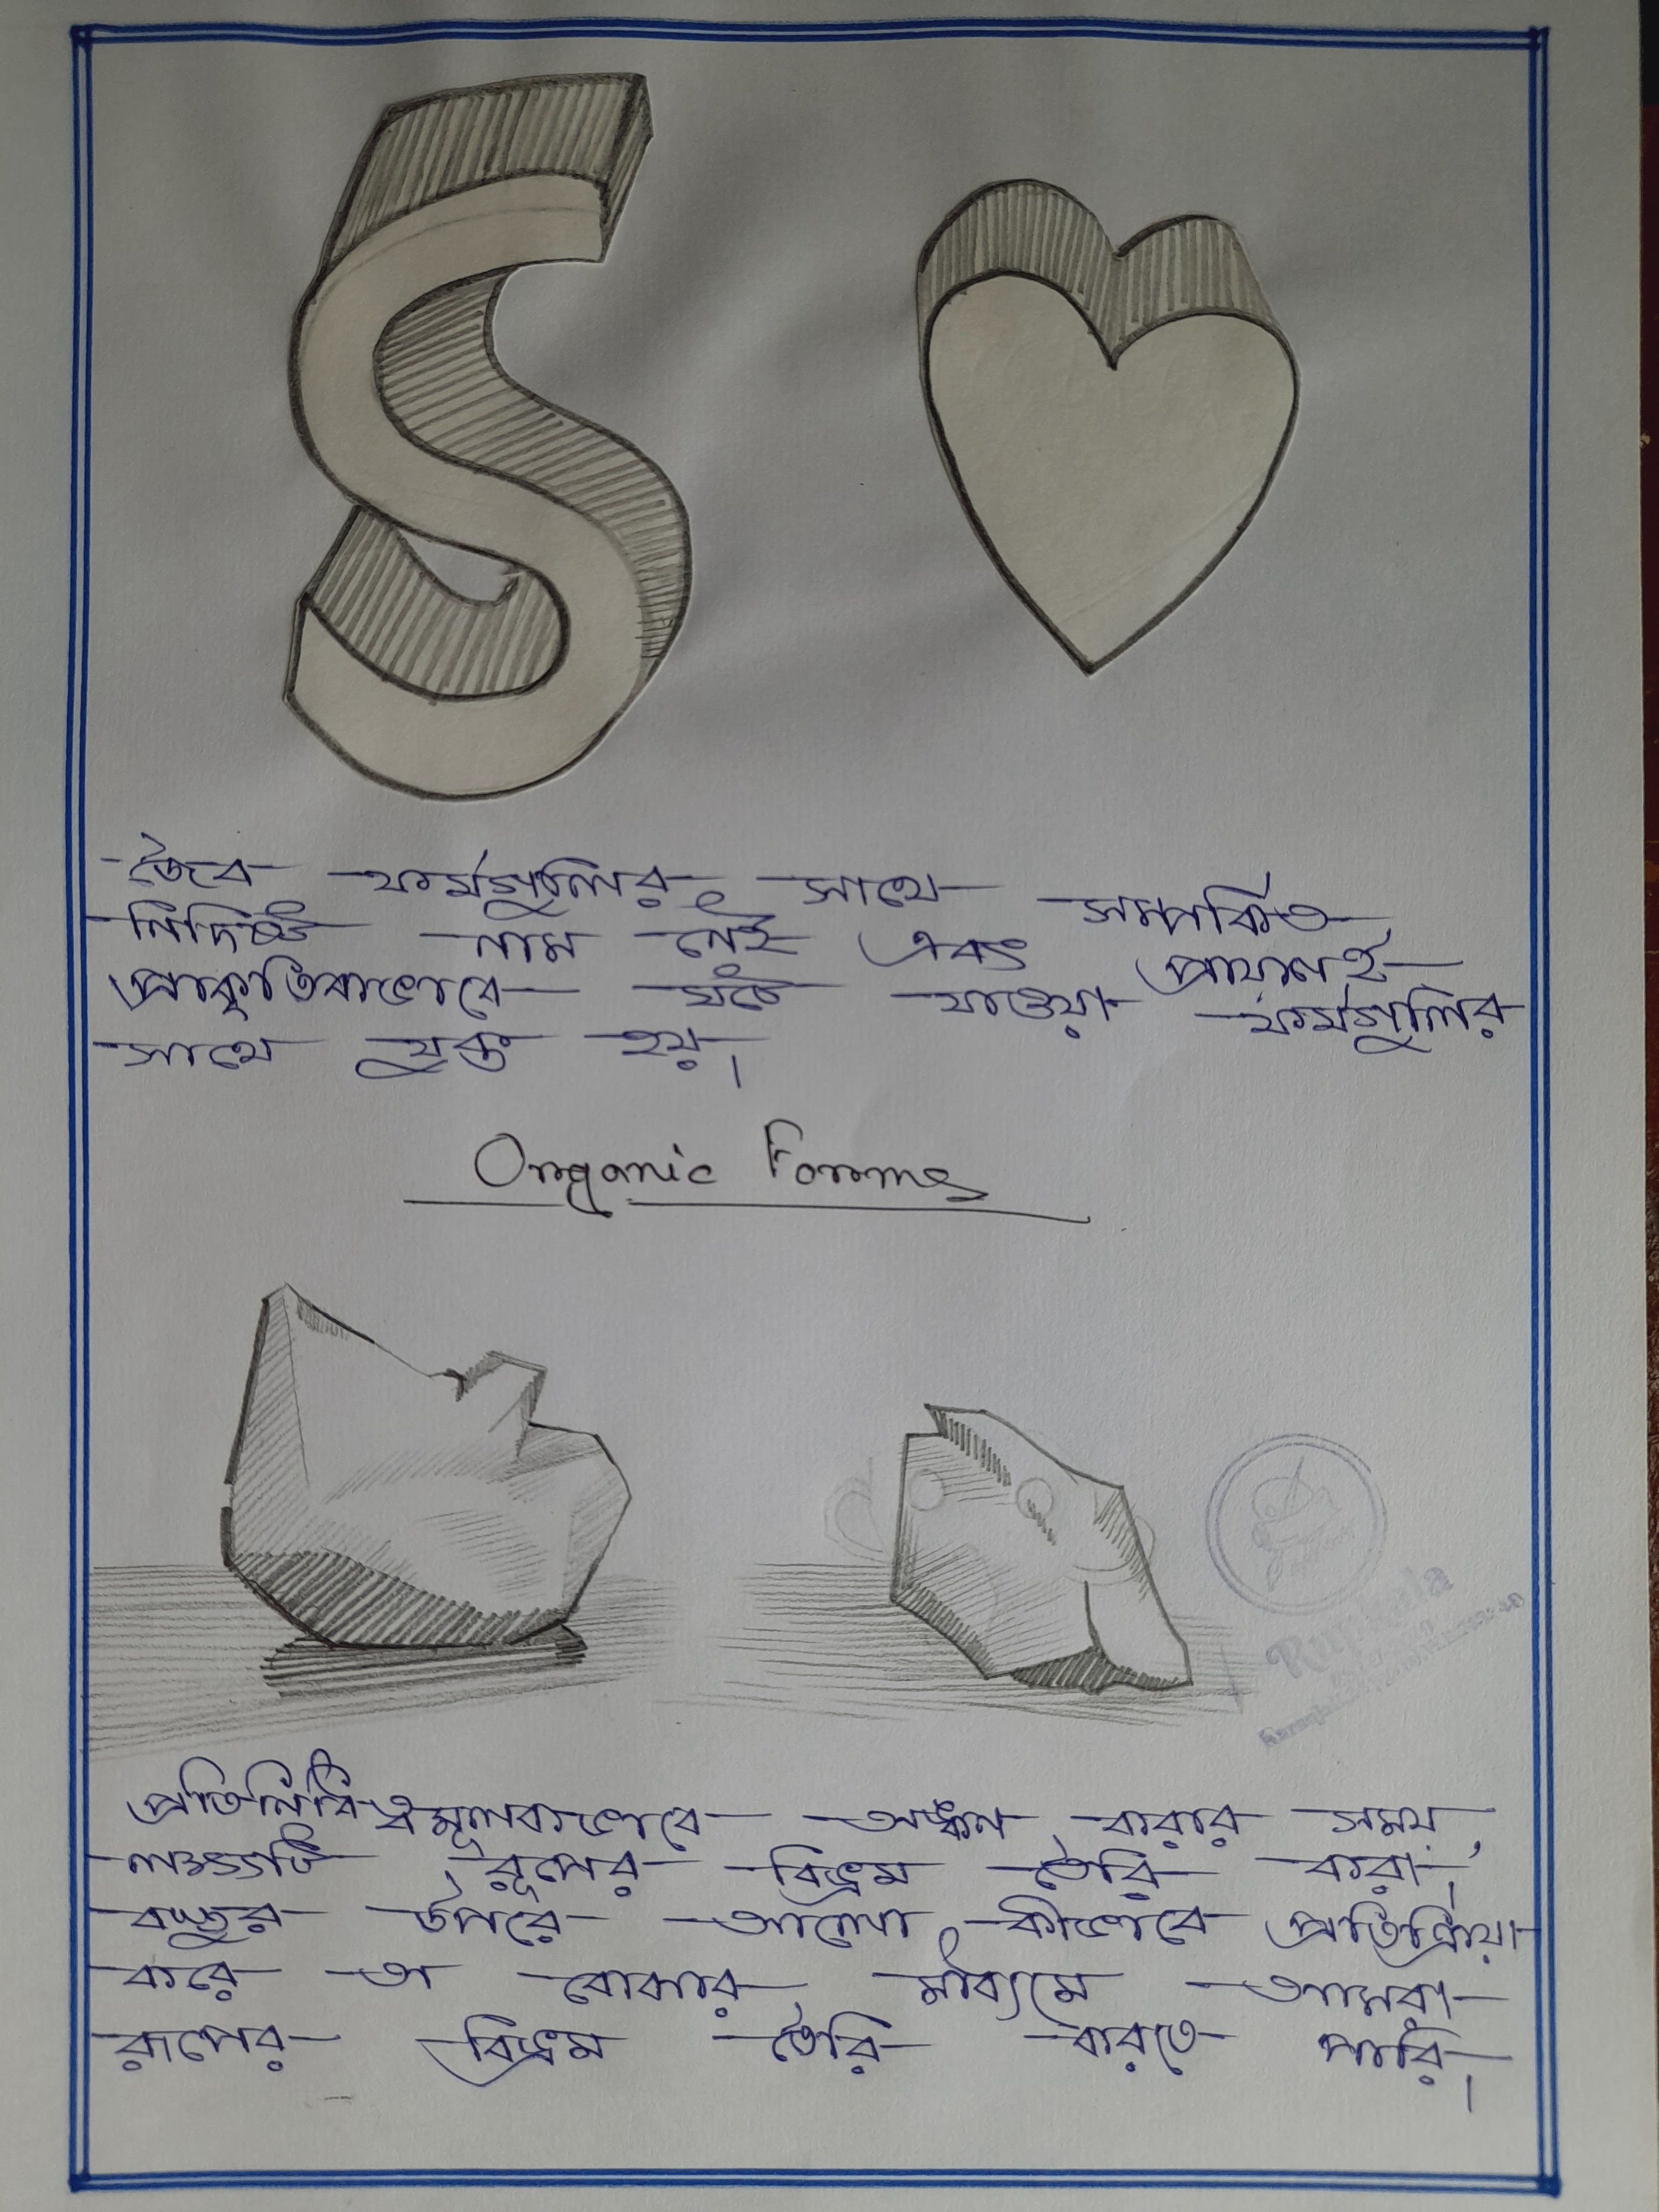 S
জৈব ফর্মগুলির সাথে সম্পর্কিত
নির্দিষ্ট নাম নেই এবং প্রায়শই
প্রাকৃতিকভাবে ঘটে যাওয়া ফর্মগুলির
সাথে যুক্ত হয়।
Organic Forms
প্রতিনিধিত্বমূলকভাবে অঙ্কন করার সময়,
লক্ষ্যটি রূপের বিভ্রম তৈরি করা।
বস্তুর উপরে আলো কীভাবে প্রতিক্রিয়া
করে তা বোঝার মাধ্যমে আমরা
রূপের বিভ্রম তৈরি করতে পারি।